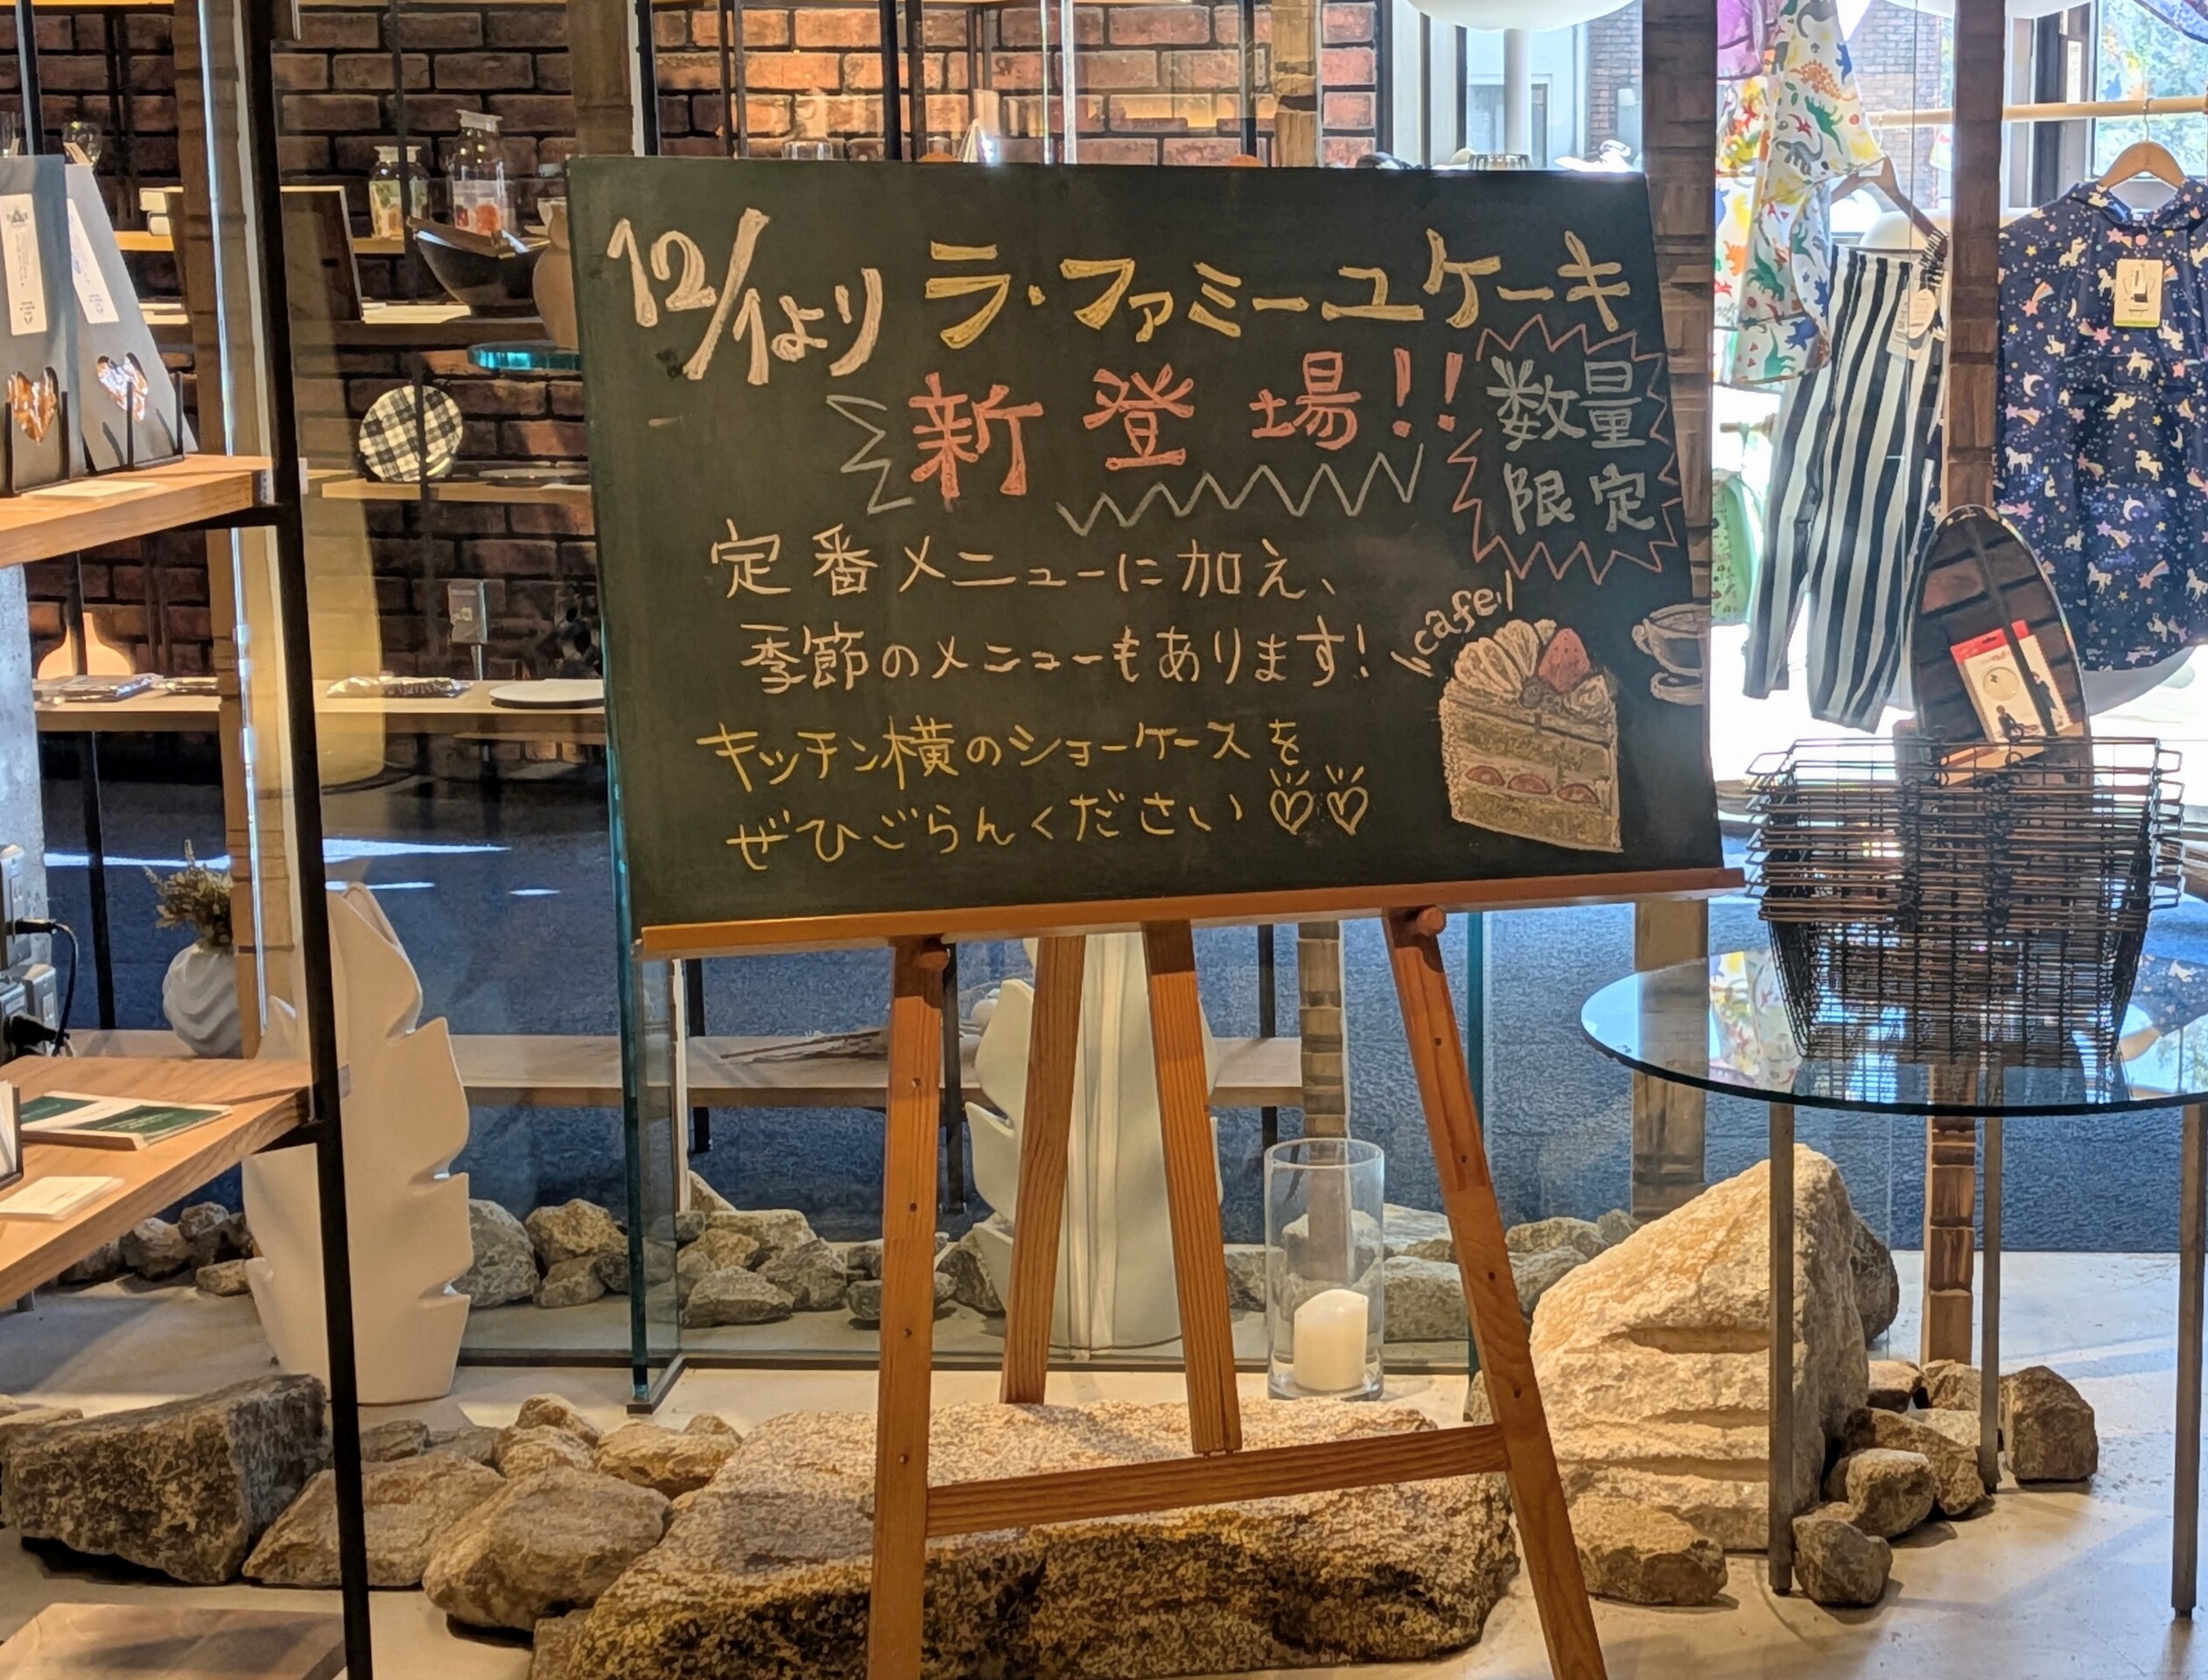 12/1より ラ・ファミーユケーキ
新登場!!
数量
限定
定番メニューに加え、
季節のメニューもあります!
cafe
キッチン横のショーケースを
ぜひごらんください